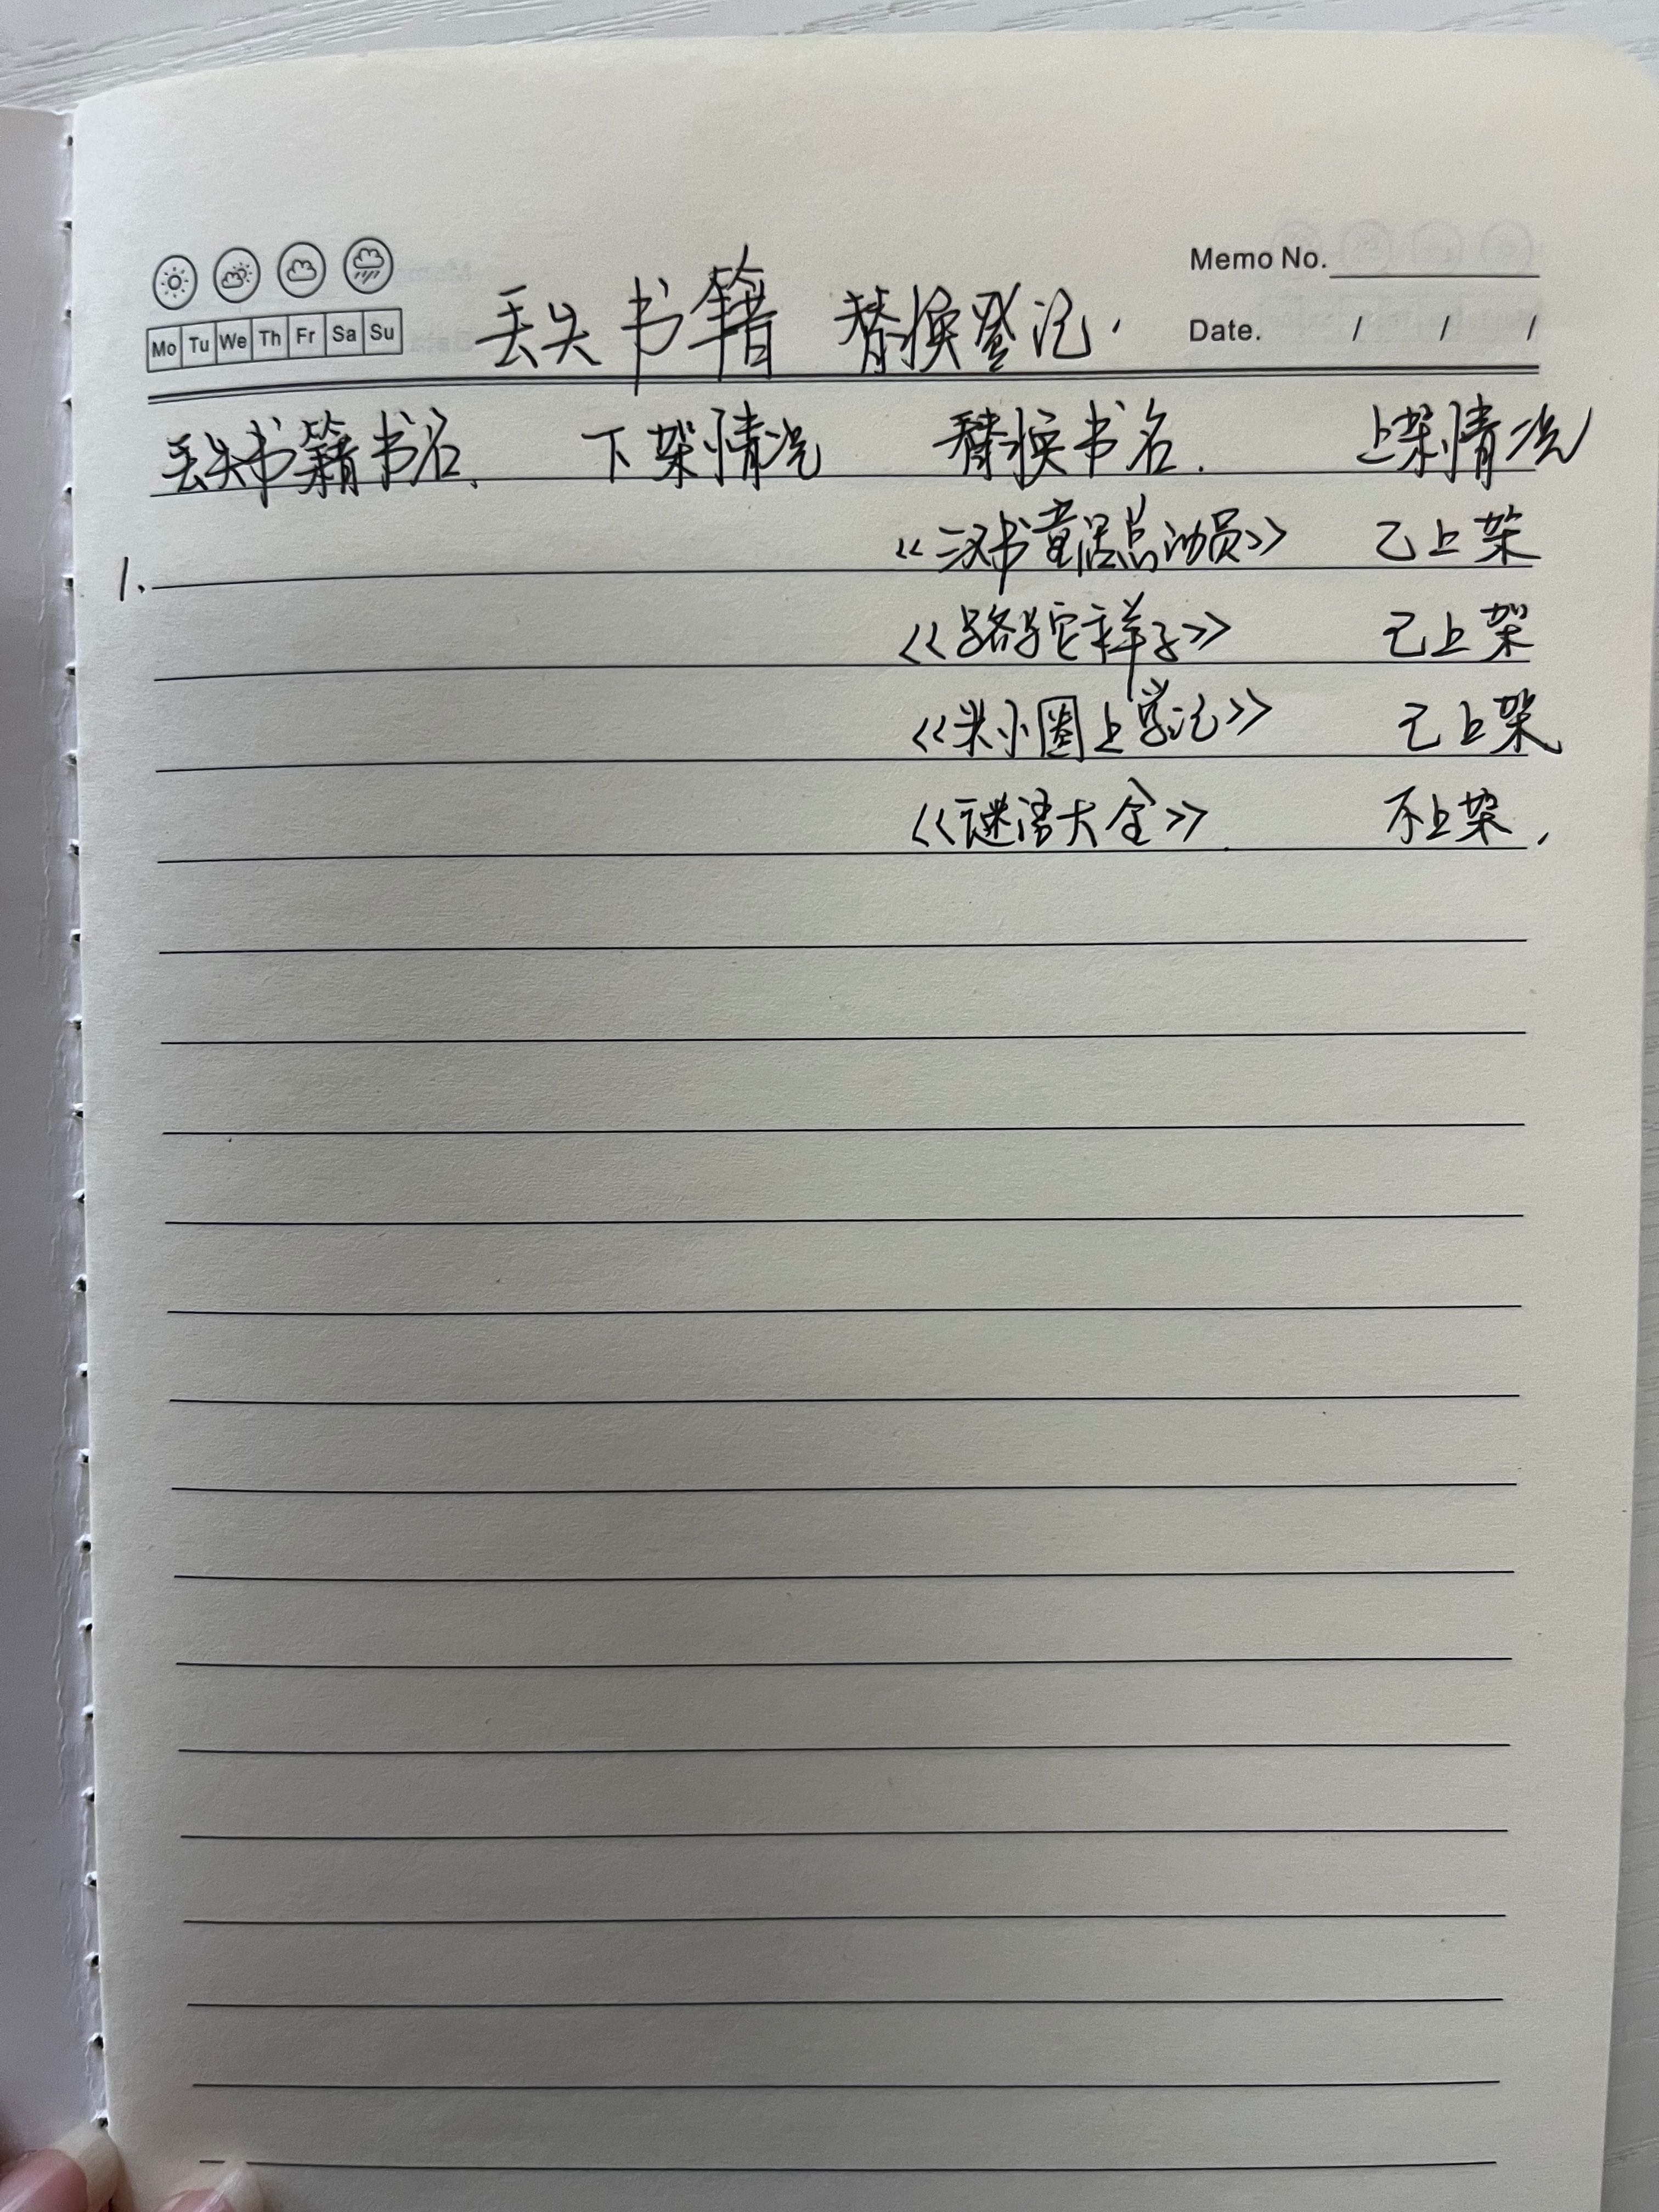 Memo No.
Mo Tu We Th Fr Sa Su
丢失书籍 替换登记.
Date. / / /
丢失书籍书名. 下架情况 替换书名. 上架情况
1. 《汉书童话总动员》 已上架
《骆驼祥子》 已上架
《米小圈上学记》 已上架
《谜语大全》. 不上架.